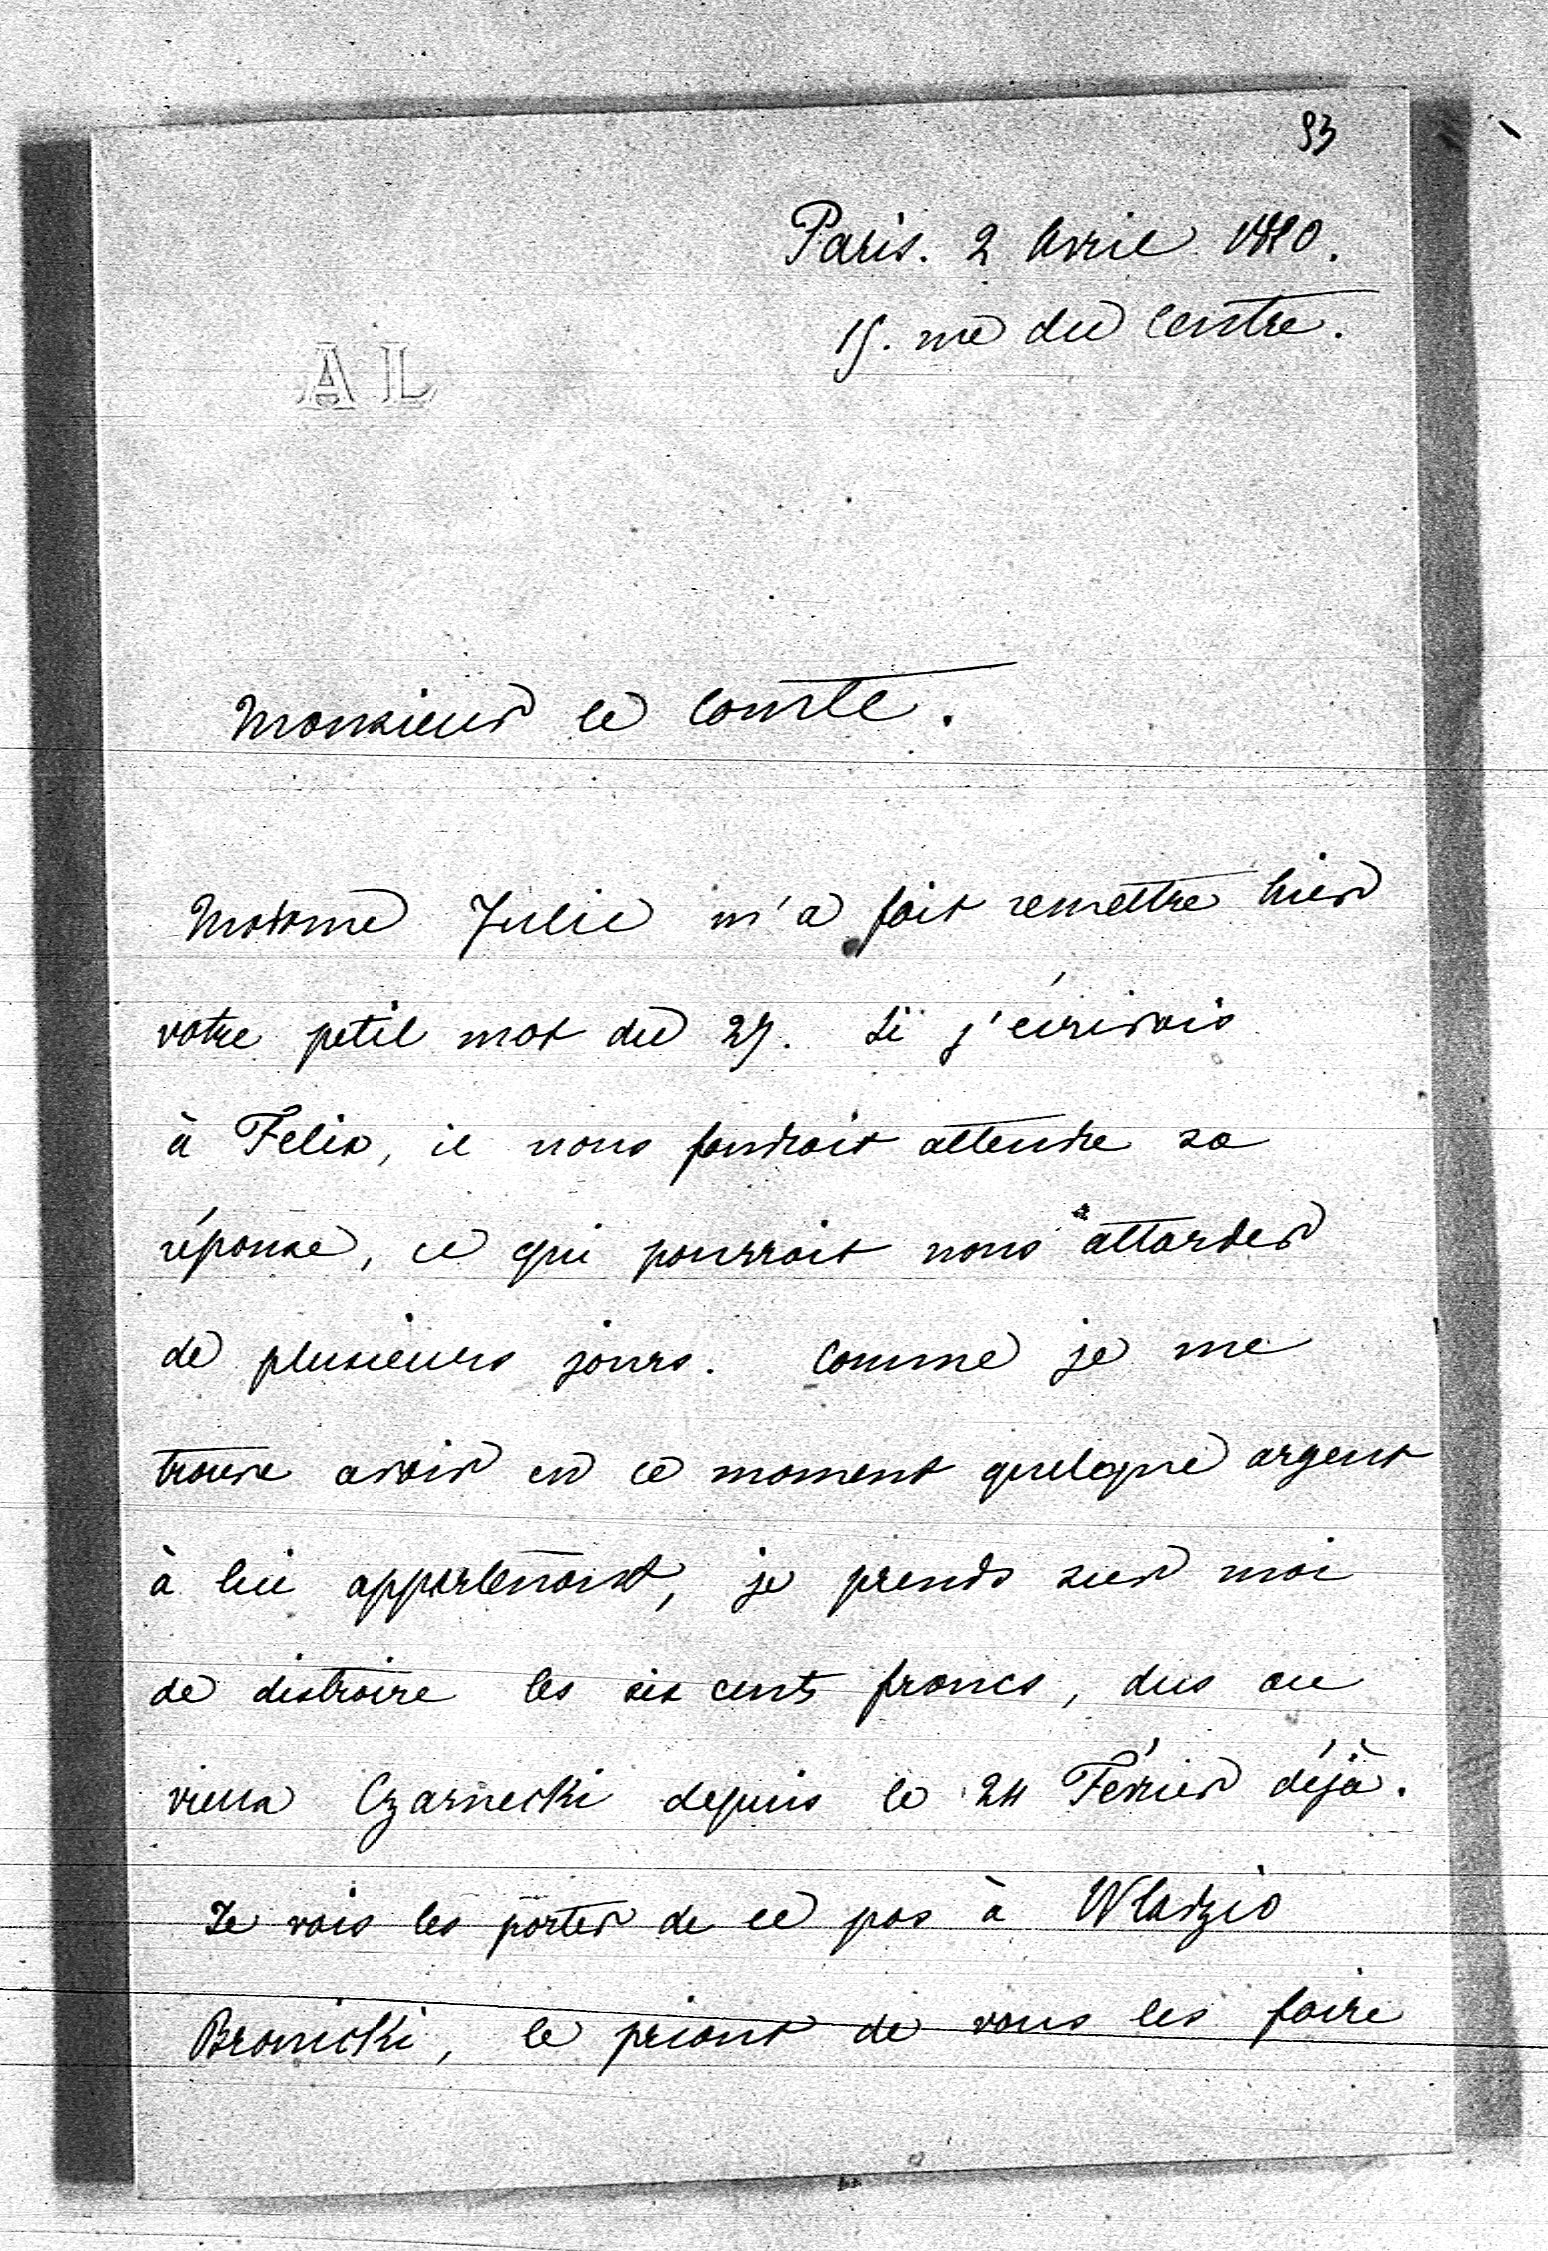 93
Paris. 2 Avril 1880.
15. rue du Centre.
AL
Monsieur le Comte.
Madame Julie m'a fait remettre hier
votre petit mot du 27. Si j'écrivais
à Felix, il nous faudrait attendre sa
réponse, ce qui pourrait nous attarder
de plusieurs jours. Comme je me
trouve avoir en ce moment quelque argent
à lui appartenant, je prends sur moi
de distraire les six cents francs, dus au
vieux Czarnecki depuis le 24 Février déjà.
Je vais les porter de ce pas à Wladzio
Bronicki, le priant de vous les faire